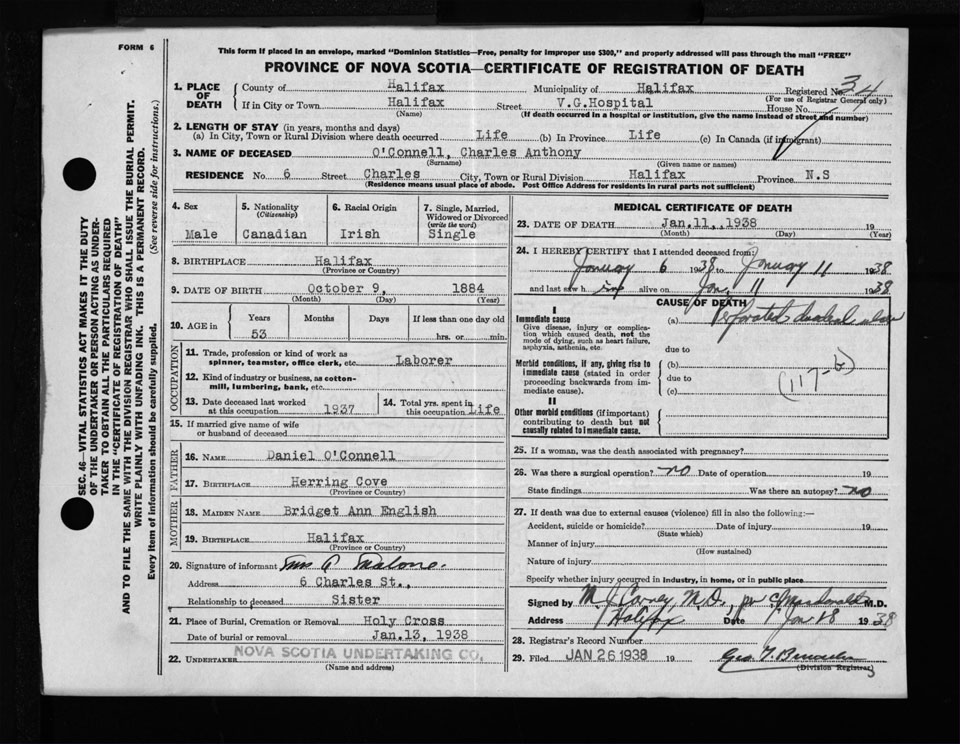 FORM 6
This form if placed in an envelope, marked "Dominion Statistics—Free, penalty for improper use $300," and properly addressed will pass through the mail "FREE"
PROVINCE OF NOVA SCOTIA—CERTIFICATE OF REGISTRATION OF DEATH
SEC. 46—VITAL STATISTICS ACT MAKES IT THE DUTY
OF THE UNDERTAKER OR PERSON ACTING AS UNDER-
TAKER TO OBTAIN ALL THE PARTICULARS REQUIRED
IN THE "CERTIFICATE OF REGISTRATION OF DEATH"
AND TO FILE THE SAME WITH THE DIVISION REGISTRAR WHO SHALL ISSUE THE BURIAL PERMIT.
WRITE PLAINLY WITH UNFADING INK. THIS IS A PERMANENT RECORD.
Every item of information should be carefully supplied. (See reverse side for instructions.)
1. PLACE OF DEATH
County of Halifax Municipality of Halifax Registered No. 34
(For use of Registrar General only)
If in City or Town Halifax Street V.G.Hospital House No.
(Name) (If death occurred in a hospital or institution, give the name instead of street and number)
2. LENGTH OF STAY (in years, months and days)
(a) In City, Town or Rural Division where death occurred Life (b) In Province Life (c) In Canada (if immigrant)
3. NAME OF DECEASED O'Connell, Charles Anthony
(Surname) (Given name or names)
RESIDENCE No 6 Street Charles City, Town or Rural Division Halifax Province N.S
(Residence means usual place of abode. Post Office Address for residents in rural parts not sufficient)
4. Sex Male
5. Nationality (Citizenship) Canadian
6. Racial Origin Irish
7. Single, Married, Widowed or Divorced (write the word) Single
8. BIRTHPLACE Halifax
(Province or Country)
9. DATE OF BIRTH October 9, 1884
(Month) (Day) (Year)
10. AGE in Years Months Days If less than one day old
53 hrs. or min.
OCCUPATION
11. Trade, profession or kind of work as
spinner, teamster, office clerk, etc. Laborer
12. Kind of industry or business, as cotton-
mill, lumbering, bank, etc.
13. Date deceased last worked at this occupation 1937
14. Total yrs. spent in this occupation Life
15. If married give name of wife
or husband of deceased
FATHER
16. NAME Daniel O'Connell
17. BIRTHPLACE Herring Cove
(Province or Country)
MOTHER
18. MAIDEN NAME Bridget Ann English
19. BIRTHPLACE Halifax
(Province or Country)
20. Signature of informant Mrs Malone.
Address 6 Charles St.,
Relationship to deceased Sister
21. Place of Burial, Cremation or Removal Holy Cross
Date of burial or removal Jan.13, 1938
22. UNDERTAKER NOVA SCOTIA UNDERTAKING CO,
(Name and address)
MEDICAL CERTIFICATE OF DEATH
23. DATE OF DEATH Jan.11, 1938 19
(Month) (Day) (Year)
24. I HEREBY CERTIFY that I attended deceased from:
January 6 1938 to January 11 1938
and last saw h im alive on Jan. 11 1938
CAUSE OF DEATH
I
Immediate cause (a) Perforated duodenal ulcer
Give disease, injury or complica-
tion which caused death, not the
mode of dying, such as heart failure,
asphyxia, asthenia, etc.
due to
Morbid conditions, if any, giving rise to (b)
immediate cause (stated in order due to
proceeding backwards from im- (c)
mediate cause).
(117-b)
II
Other morbid conditions (if important)
contributing to death but not
causally related to immediate cause.
25. If a woman, was the death associated with pregnancy?
26. Was there a surgical operation? no Date of operation 19
State findings Was there an autopsy? no
27. If death was due to external causes (violence) fill in also the following:—
Accident, suicide or homicide? Date of injury 19
(State which)
Manner of injury
(How sustained)
Nature of injury
Specify whether injury occurred in industry, in home, or in public place
Signed by M.D., M.D.
Address Halifax Date Jan 18 1938
28. Registrar's Record Number
29. Filed JAN 26 1938 19 Geo. T.
(Division Registrar)
3